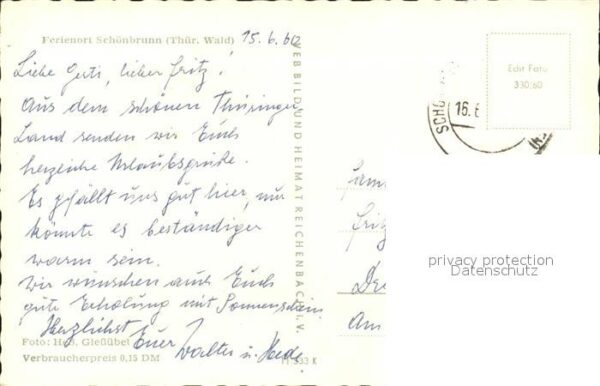 Ferienort Schönbrunn (Thür. Wald) 15.6.62
Liebe Gerti, lieber Fritz!
Aus dem schönen Thüringer
Land senden wir Euch
herzliche Urlaubsgrüße.
Es gefällt uns gut hier, nur
könnte es beständiger
warm sein.
Wir wünschen auch Euch
gute Erholung mit Sonnenschein.
Herzlichst Euer
Walter u.
Foto: Heß, Gießübel
Verbraucherpreis 0,15 DM
VEB BILD UND HEIMAT REICHENBACH I. V.
533 K
Edit Foto
330/60
SCHÖ
16.6
Fam
Fritz
Am
privacy protection
Datenschutz